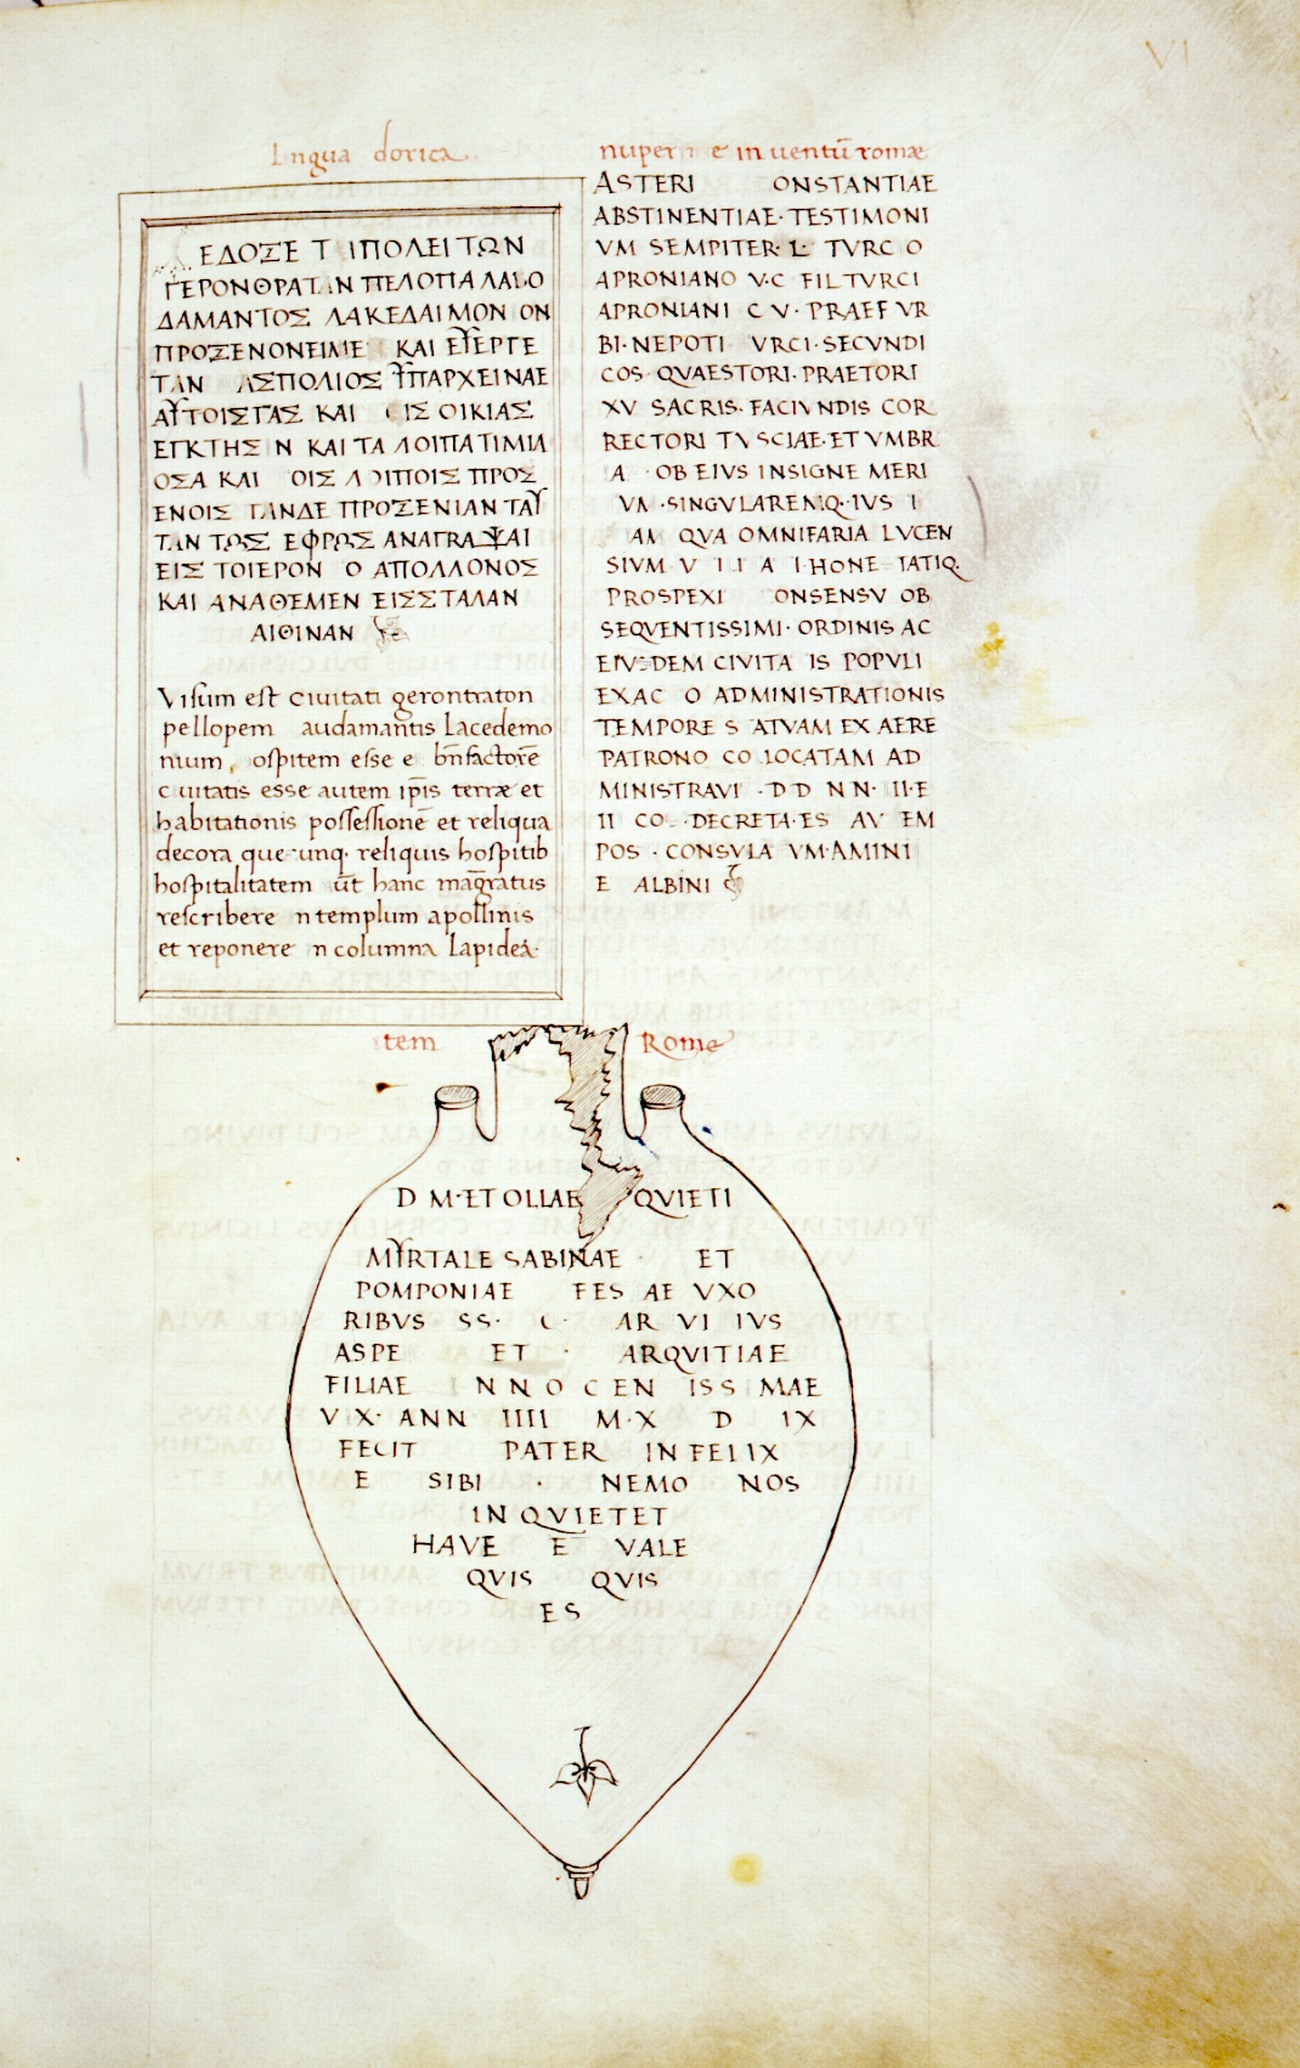 VI
lingua dorica
ΕΔΟΞΕ Τ ΙΠΟΛΕΙ ΤΩΝ
ΓΕΡΟΝΘΡΑΤ Ν ΠΕΛΟΠΑ ΛΑΙ Ο
ΔΑΜΑΝΤΟΣ ΛΑΚΕΔΑΙ ΜΟΝ ΟΝ
ΠΡΟΞΕΝΟΝΕΙΜΕ ΚΑΙ ΕΥΕΡΓΕ
ΤΑΝ ΑΣΠΟΛΙΟΣ ΥΠΑΡΧΕΙΝΑΕ
ΑΥΤΟΙΣΓΑΣ ΚΑΙ ΙΣ ΟΙΚΙΑΣ
ΕΓΚΤΗΣ Ν ΚΑΙ ΤΑ ΛΟΙΠΑ ΤΙΜΙΑ
ΟΣΑ ΚΑΙ ΟΙΣ Λ ΟΙΠΟΙΣ ΠΡΟΣ
ΕΝΟΙΣ ΤΑΝΔΕ ΠΡΟΞΕΝΙΑΝ ΤΑΥ
ΤΑΝ ΤΩΣ ΕΦΡΩΣ ΑΝΑΓΡΑΨΑΙ
ΕΙΣ ΤΟΙΕΡΟΝ Ο ΑΠΟΛΛΟΝΟΣ
ΚΑΙ ΑΝΑΘΕΜΕΝ ΕΙΣΣΤΑΛΑΝ
ΑΙΘΙΝΑΝ
Visum est ciuitati gerontraton
pellopem audamantis lacedemo
nium, ospitem esse e bn̄factorē
c uitatis esse autem ip̄is terræ et
habitationis possessionē et reliqua
decora que unq. reliquis hospitib
hospitalitatem ūt hanc maḡratus
rescribere n templum apollinis
et reponere n columna lapideā·
nuper e inuentū romæ
ASTERI ONSTANTIAE
ABSTINENTIAE· TESTIMONI
VM SEMPITER· L· TVRC O
APRONIANO V·C FIL TVRCI
APRONIANI C V· PRAEF VR
BI· NEPOTI VRCI· SECVNDI
COS QVAESTORI· PRAETORI
XV SACRIS· FACIVNDIS COR
RECTORI TVSCIAE· ET VMBR
A · OB EIVS INSIGNE MERI
VM ·SINGVLAREMQ· IVS I
AM QVA OMNIFARIA LVCEN
SIVM V I I A I HONE TATIQ·
PROSPEXI ONSENSV OB
SEQVENTISSIMI· ORDINIS AC
EIVSDEM CIVITA IS POPVLI
EXAC O ADMINISTRATIONIS
TEMPORE S ATVAM EX AERE
PATRONO CO LOCATAM AD
MINISTRAVI · D D N N· II·E
II CO · DECRETA· ES AV EM
POS · CONSVLA VM· AMINI
E ALBINI
item Rome
D M· ET OLLAE QVIETI
MYRTALE SABINAE · ET
POMPONIAE FES AE VXO
RIBVS SS· C· AR VI IVS
ASPE ET · ARQVITIAE
FILIAE INNOCEN ISSIMAE
V X· ANN IIII M·X D IX
FECIT PATER INFELIX
E SIBI · NEMO NOS
INQVIETET
HAVE E VALE
QVIS QVIS
ES